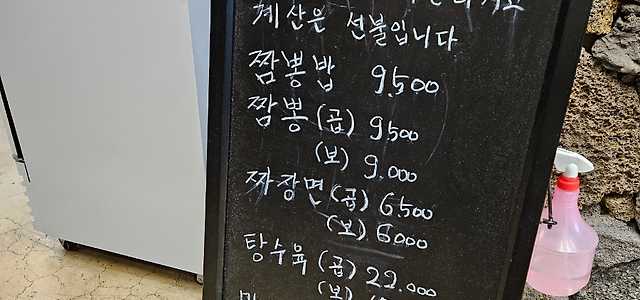 계산은 선불입니다
짬뽕밥 9,500
짬뽕 (곱) 9,500
(보) 9,000
짜장면 (곱) 6,500
(보) 6000
탕수육 (곱) 22,000
(보)